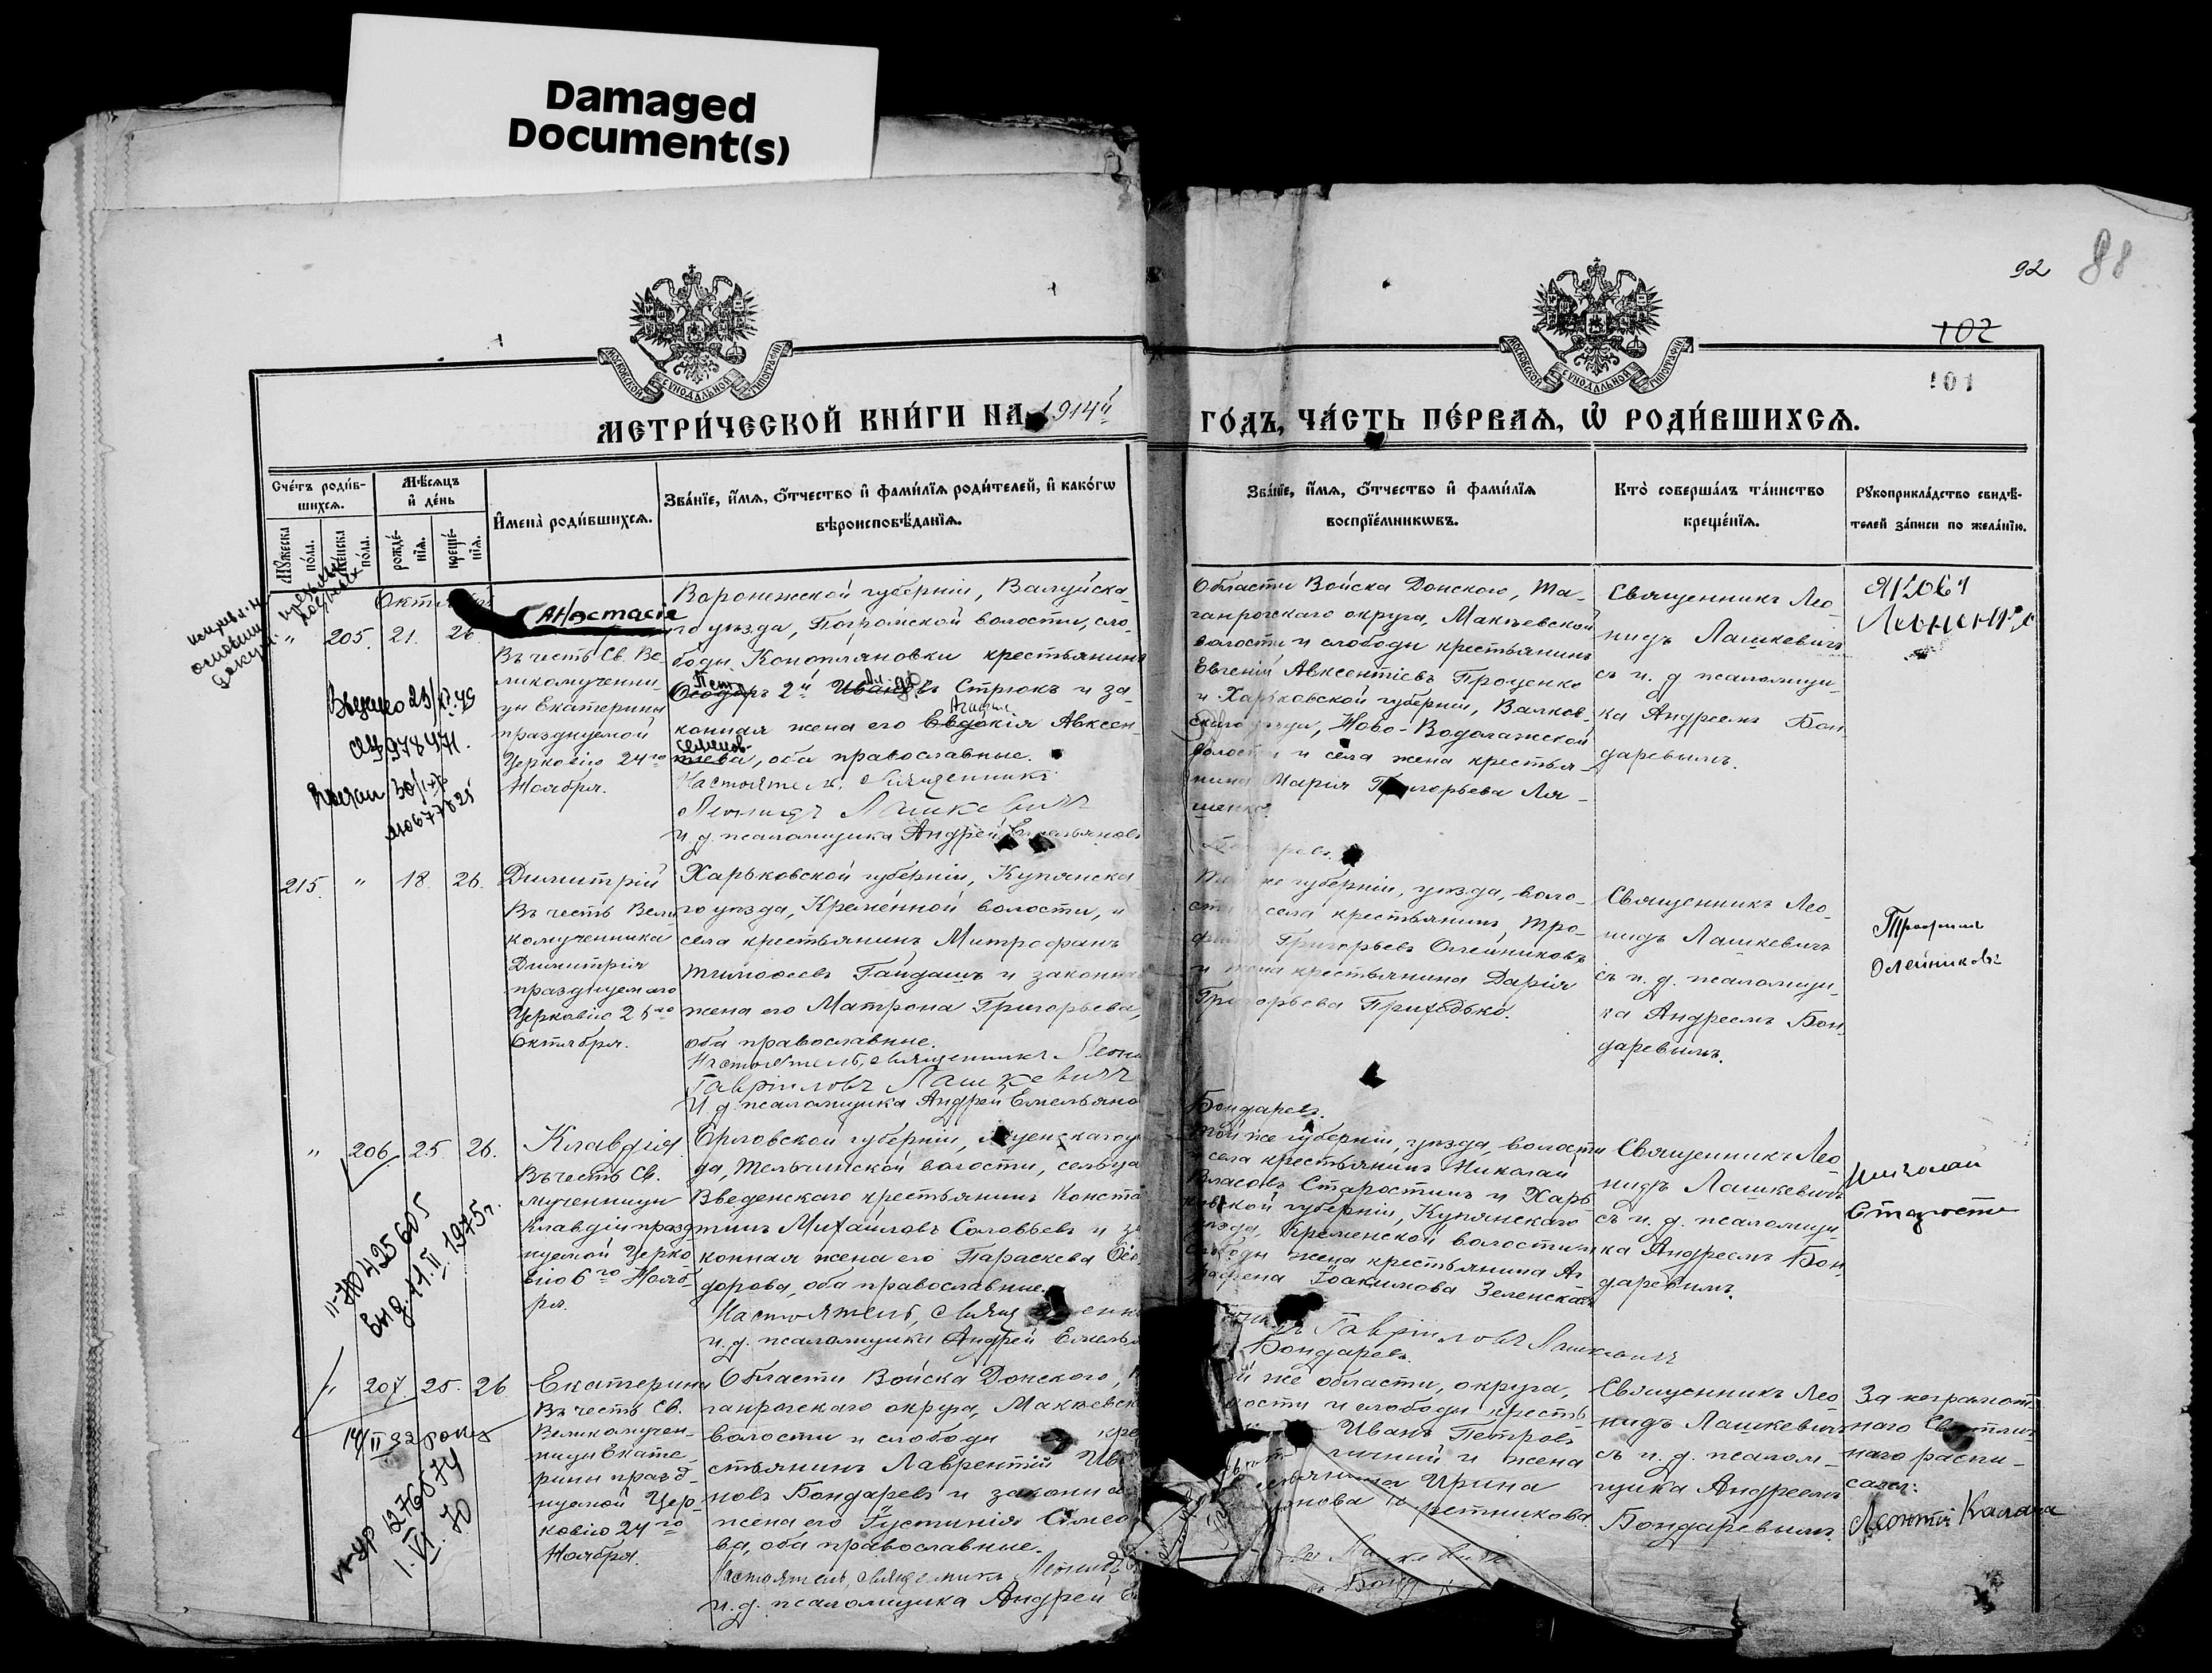 Damaged
Document(s)
92
88
102
101
МОСКОВСКОЙ СѴНОДАЛЬНОЙ ТИПОГРАФІИ
МОСКОВСКОЙ СѴНОДАЛЬНОЙ ТИПОГРАФІИ
МЕТРИ́ЧЕСКОЙ КНИ́ГИ НА 1914й
ГО́ДЪ, ЧА́СТЬ ПЕ́РВАѦ, Ѡ҆ РОДИ́ВШИХСѦ.
Счéтъ роди́в-
шихсѧ.
Мꙋ́жеска по́ла.
Же́нска по́ла.
Мѣ́сѧцъ
и҆ де́нь
рожде́-
нїѧ.
креще́-
нїѧ.
И҆мена̀ роди́вшихсѧ.
Зва́нїе, и҆́мѧ, ѻ҆́тчество и҆ фамѝлїѧ роди́телей, и҆ како́гѡ
вѣроисповѣ́данїѧ.
Зва́нїе, и҆́мѧ, ѻ҆́тчество и҆ фамѝлїѧ
воспрїе́мникѡвъ.
Кто̀ соверша́лъ та́инство
креще́нїѧ.
Рꙋкоприкла́дство свидѣ́-
телей за́писи по жела́нїю.
" 205. 21. 26.
Анастасіе
Въ честь Св. Ве-
ликомученни-
цы Екатерины
празднуемой
Церковію 24го
Ноября.
Воронежской губерніи, Валуйска-
го уѣзда, Погромской волости, сло-
боды Конопляновки крестьянинъ
Ѳеодоръ 2й Ивановъ Стрюкъ и за-
конная жена его Евдокія Авксен-
тьева, оба православные.
Настоятель, Священникъ
Леонидъ Лашкевичъ
и. д. псаломщика Андрей Емельяновъ
Области Войска Донского, Та-
ганрогскаго округа, Макѣевской
волости и слободы крестьянинъ
Евгеній Авксентіевъ Проценко
и Харьковской губерніи, Валков-
скаго уѣзда, Ново-Водолажской
волости и села жена крестья-
нина Марія Григорьева Ля-
шенко.
Священникъ Лео-
нидъ Лашкевичъ
съ и. д. псаломщи-
ка Андреемъ Бон-
даревымъ.
978471.
215. " 18. 26.
Димитрій
Въ честь Вели-
комученника
Димитрія
празднуемаго
Церковію 26го
Октября.
Харьковской губерніи, Купянска-
го уѣзда, Кременной волости, и
села крестьянинъ Митрофанъ
Тимоѳеевъ Гайдашъ и законная
жена его Матрона Григорьева,
оба православные.
Настоятель, священникъ Леони
Гавріиловъ Лашкевичъ
И. д. псаломщика Андрей Емельяно
Бондаревъ.
же губерніи, уѣзда, воло-
сти и села крестьянинъ, Тро-
фимъ Григорьевъ Олейниковъ
и жена крестьянина Дарія
Григорьева Приходько.
Священникъ Лео-
нидъ Лашкевичъ
съ и. д. псаломщи-
ка Андреемъ Бон-
даревымъ.
Трофимъ
Олейниковъ
" 206 25. 26.
Клавдія
Въ честь Св.
мученницы
Клавдіи празд-
нуемой Церко-
вію 6го Нояб-
ря.
Орловской губерніи,
да, Тельчинской волости, сельца
Введенскаго крестьянинъ Конста
тинъ Михайловъ Соловьевъ и за
конная жена его Параскева Ѳео
дорова, оба православные.
Настоятель, священ
и. д. псаломщика Андрей Емелья
Гавріиловъ Лашкевичъ
Бондаревъ.
Той же губерніи, уѣзда, волости
и села крестьянинъ Николай
Власовъ Старостинъ и Харь-
ковской губерніи, Купянскаго
уѣзда, Кременской волости и
слободы жена крестьянина Аг
рафена Іоакимова Зеленская
Священникъ Лео
нидъ Лашкевичъ
съ и. д. псаломщи-
ка Андреемъ Бон-
даревымъ.
Николай
Старости
425605
выд. 11.II.1975г.
" 207. 25. 26
Екатерина
Въ честь Св.
Великомучен-
ницы Екате-
рины празд-
нуемой Цер-
ковію 24го
Ноября.
Области Войска Донского,
ганрогскаго округа, Макѣевск
волости и слободы кре
стьянинъ Лаврентій Ива
новъ Бондаревъ и законна
жена его Іустинія Симео
ва, оба православные.
Настоятель, священникъ Леонидъ
и. д. псаломщика Андрей
й же области, округа,
ости и слободы кресть
Иванъ Петровъ
и жена
Ирина
Священникъ Лео
нидъ Лашкевичъ
съ и. д. псалом-
щика Андреемъ
Бондаревымъ.
За неграмот
наго
наго распи-
сался:
Леонтій
1.VI.70